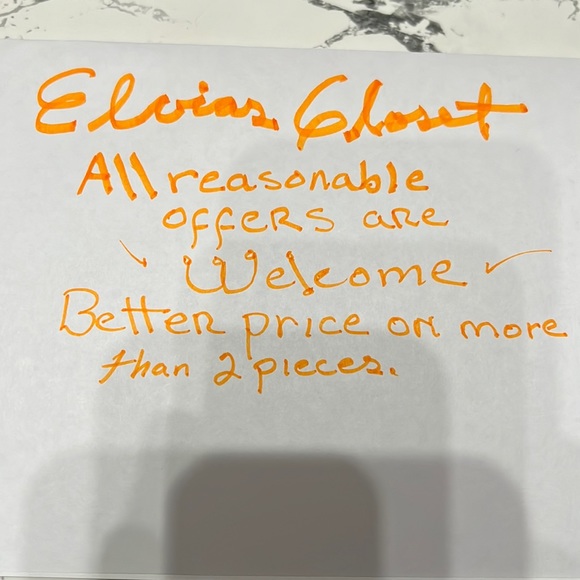 Elvias Closet
All reasonable
offers are
Welcome
Better price on more
than 2 pieces.